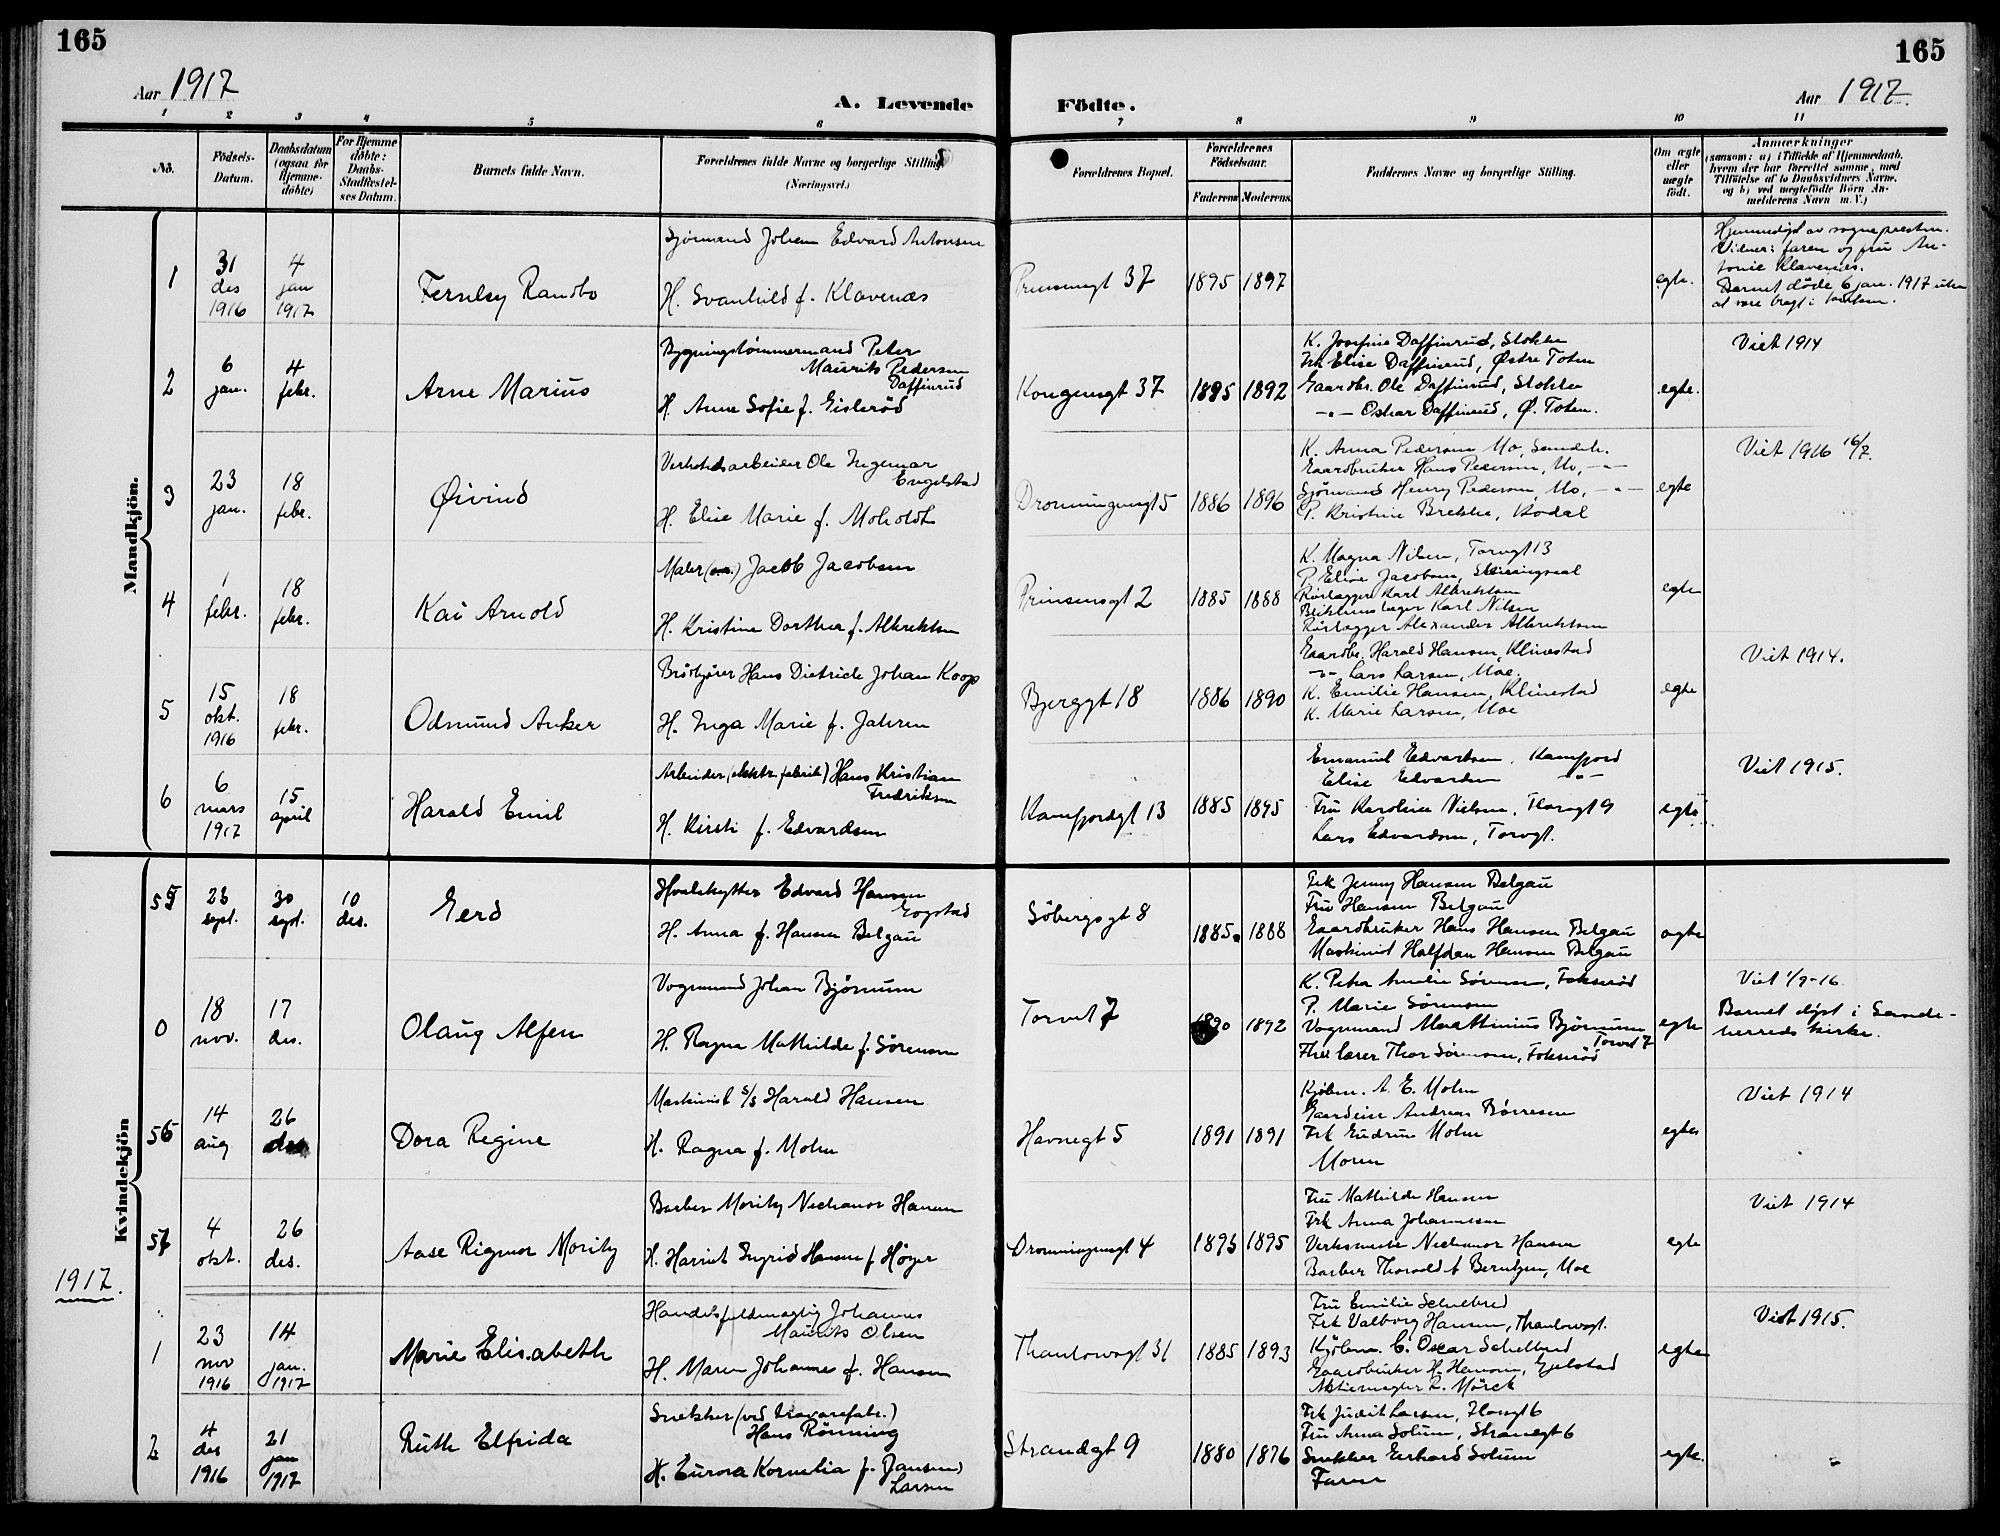 165
165
Aar 1917
A. Levende Födte.
Aar 1917.
1 2 3 4 5 6 7 8 9 10 11
No.
Födsels-Datum.
Daabsdatum (ogsaa for Hjemme-döbte)
For Hjemme döbte: Daabs-Stadfæstel-ses Datum.
Barnets fulde Navn.
Forældrenes fulde Navne og borgerlige Stilling
(Næringsvei.)
Forældrenes Bopæl.
Forældrenes Födselsaar.
Faderens Moderens
Faddernes Navne og borgerlige Stilling.
Om ægte eller uægte födt.
Anmærkninger
(saasom: a) i Tilfælde af Hjemmedaab,
hvem der har forrettet samme, med
Tilföielse af to Daabsvidners Navne,
og b) ved uægtefödte Börn An-
melderens Navn m. V.)
Mandkjön.
1
31 des 1916
4 jan 1917
Randbo
Sjømand Johan Edvard Antonsen
H. Svanhild f. Klavenæs
Prinsensgt 37
1895 1897
egte.
Hjemmedøpt av sognepresten.
Vidner: faren og fru An-
tonie Klavenæs.
Barnet døde 6 jan. 1917 uten
at være bragt i kirken.
2
6 jan.
4 febr.
Arne Marius
Bygningstømmermand Peter
Mauritz Pedersen
Daffinrud
H. Anne Sofie f. Gislerød
Kongensgt 37
1895 1892
K. Josefine Daffinrud, Stokke
Frk Elise Daffinrud, Østre Toten
Gaardbr. Ole Daffinrud, Stokke
-"- Oskar Daffinrud, Ø. Toten.
egte.
Viet 1914
3
23 jan.
18 febr.
Øivind
Verkstedsarbeider Ole Ingemar
Engelstad
H. Elise Marie f. Moholdt
Dronningensgt 5
1886 1896
K. Anna Pedersen Mo, Sandeh.
Gaardbruker Hans Pedersen, Mo, -"-
Sjømand Henry Pedersen, Mo, -"-
P. Kristine Brekke, Hodal
egte
Viet 1916 16/7.
4
1 febr.
18 febr.
Kai Arnold
Maler Jacob Jacobsen
H. Kristine Dorthea f. Albrektsen
Prinsensgt 2
1885 1888
K. Magna Nilsen, Torvgt 13
P. Elise Jacobsen, Skiringssal
Rørlægger Karl Albrektsen
Blikkenslager Karl Nilsen
Rørlægger Alexander Albrektsen
egte
5
15 okt. 1916
18 febr.
Odmund Anker
Brøkjører Hans Dietrich Johan Koop
H. Inga Marie f. Jahren
Bjerggt 18
1886 1890
Gaardbr. Harald Hansen, Klinestad
-"- Lars Larsen, Moe.
K. Emilie Hansen, Klinestad
K. Marie Larsen, Moe
egte
Viet 1914.
6
6 mars 1917
15 april
Harald Emil
Arbeider (elektr. fabrik) Hans Kristian
Fredriksen
H. Kirsti f. Edvardsen
Kamfjordgt 13
1885 1895
Emanuel Edvardsen, Kamfjord
Elise Edvardsen -"-
Fru Karoline Nielsen, Torvgt 9
Lars Edvardsen, Torvgt.
egte
Viet 1915.
Kvindekjön
55
23 sept.
30 sept.
10 des.
Gerd
Hvalskytter Edvard Hansen
Gogstad
H. Anna f. Hansen Belgau
Söbergsgt 8
1885. 1888
Frk Jenny Hansen Belgau
Fru Hansen Belgau
Gaardbruker Hans Hansen Belgau
Maskinist Halfdan Hansen Belgau
egte
0
18 nov.
17 des.
Olaug Alfen
Vognmand Johan Bjørnum
H. Ragna Mathilde f. Sörensen
Torvet 7
1890 1892
K. Petra Amalie Sørensen, Fokserød
P. Marie Sørensen
Vognmand Marthinius Bjørnum
Torvet 7
lærer Thor Sørensen, Fokserød
egte
Viet 1/9-16
Barnet døpt i Sande-
herreds kirke.
56
14 aug
26 des
Dora Regine
Maskinist s/s Harald Hansen
H. Ragna f. Holm
Havnegt 5
1891 1891
Kjøbm. A. E. Holm
Gaardeier Andreas Børresen
Frk Gudrun Holm
Moren
egte
Viet 1914
57
4 okt.
26 des.
Aase Rigmor Moritz
Barber Moritz Nechanor Hansen
H. Harriet Ingrid Hansen f. Høyer
Dronningensgt 4
1893 1895
Fru Mathilde Hansen
Frk Anna Johannesen
Verksmester Nechanor Hansen
Barber Thorvald A Berntzen, Moe
egte
Viet 1914
1917.
1
23 nov 1916
14 jan. 1917
Marie Elisabeth
Handelsfuldmægtig Johannes
Mauritz Olsen
H. Maren Johanne f. Hansen
Thaulowsgt 31
1885 1893
Fru Emilie Schelbred
Frk Valborg Hansen, Thaulowsgt.
Kjøbm. C. Oscar Schelbred
Gaardbruker H. Hansen, Gjelstad
Aktiemegler R. Mörck
egte
Viet 1915.
2
4 des 1916
21 jan 1917
Ruth Elfrida
Snekker (ved travarefabr.)
Hans Rönning
H. Eurora Kornelia f. Jansen
Larsen
Strandgt 9
1880 1876
Frk Judit Larsen, Havgt 6
Fru Anna Solum, Strandgt 6
Snekker Gerhard Solum
Faren
egte.